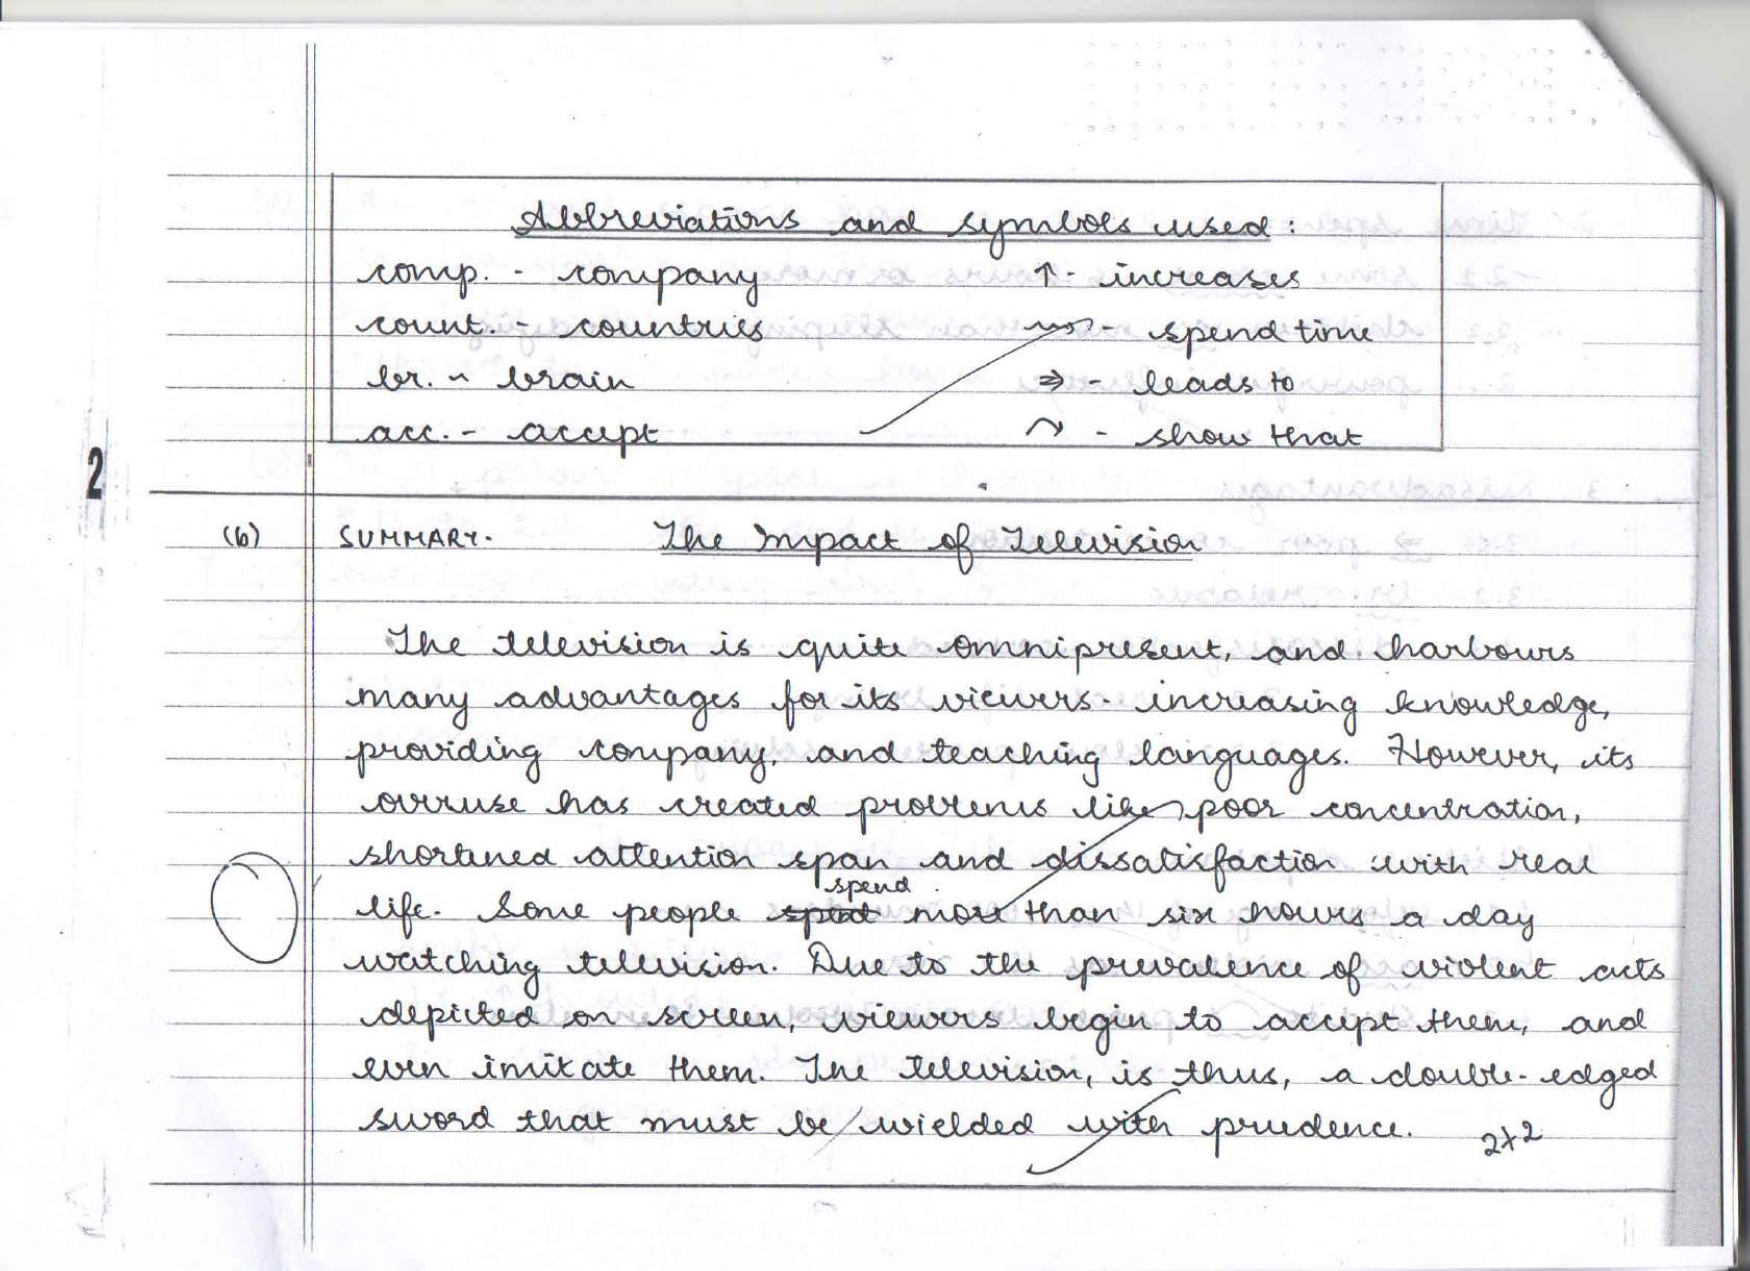 Abbreviations and symbols used :
comp. - company ↑ - increases
count. - countries ~~> - spend time
br. - brain ⇒ - leads to
acc. - accept ↷ - show that
2
(b) SUMMARY. The Impact of Television
The television is quite omnipresent, and harbours
many advantages for its viewers - increasing knowledge,
providing company, and teaching languages. However, its
overuse has created problems like poor concentration,
shortened attention span and dissatisfaction with real
life. Some people spend more than six hours a day
watching television. Due to the prevalence of violent acts
depicted on screen, viewers begin to accept them, and
even imitate them. The television, is thus, a double-edged
sword that must be wielded with prudence. 2+2